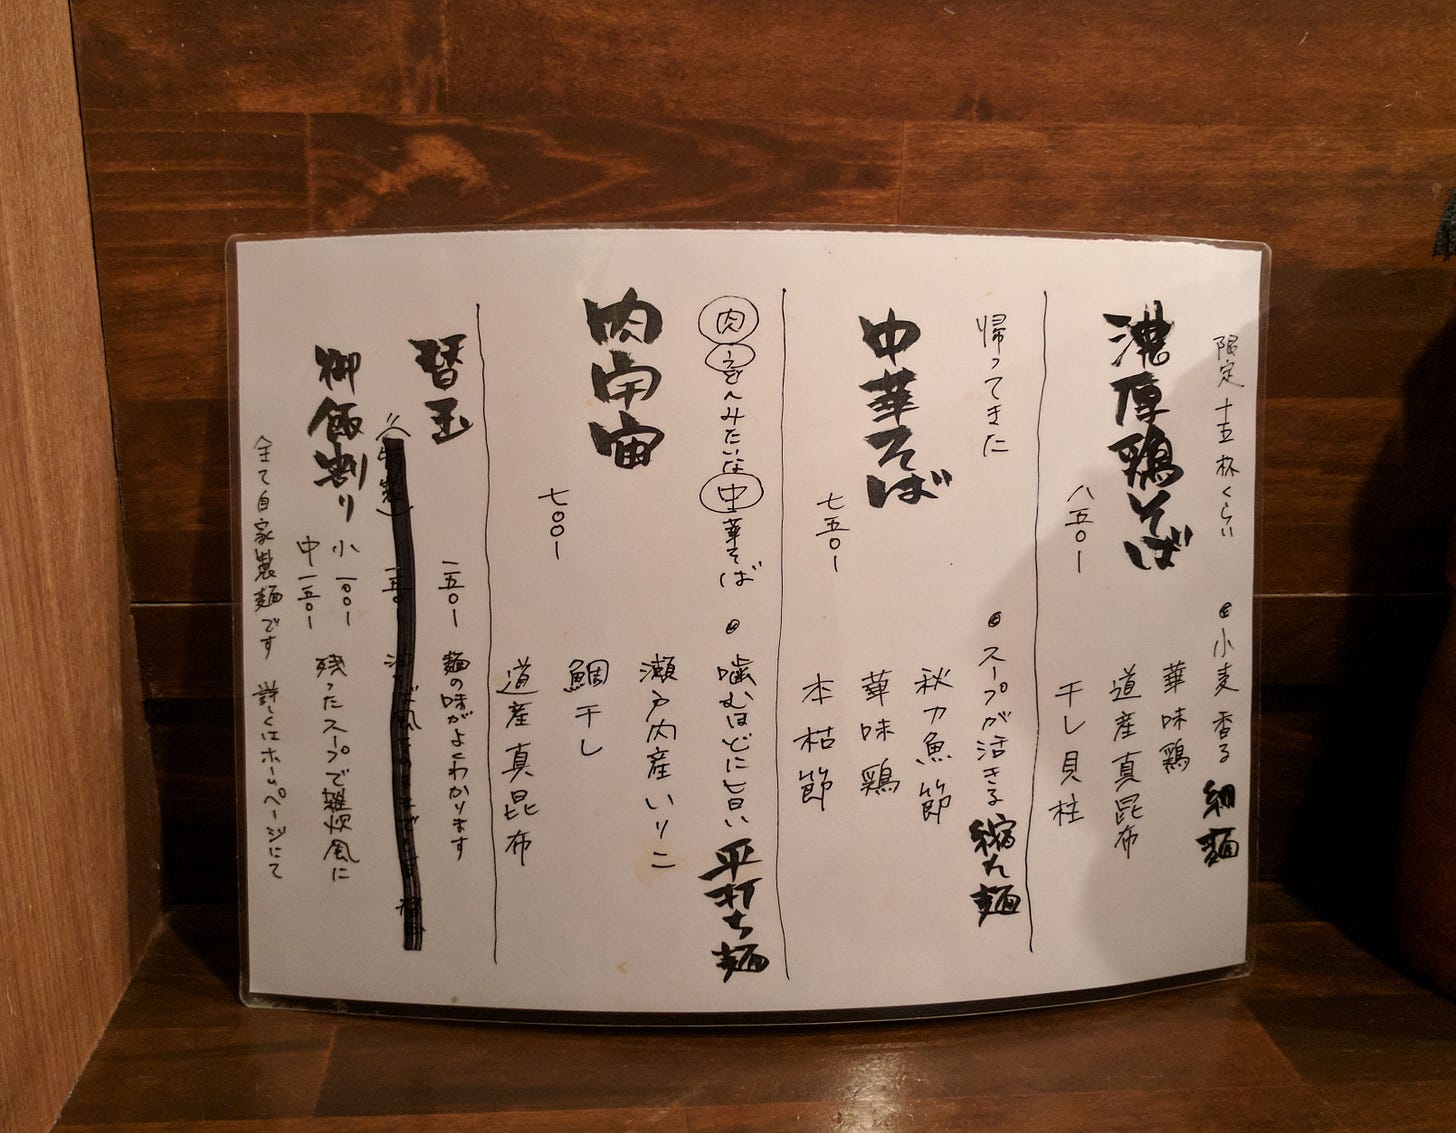 限定 十五杯くらい ◎小麦香る 細麺
濃厚鶏そば
八五〇ー
華味鶏
道産真昆布
干し貝柱
帰ってきた ◎スープが活きる 縮れ麺
中華そば
七五〇ー
秋刀魚節
華味鶏
本枯節
肉うどんみたいな中華そば ◎噛むほどに旨い 平打ち麺
肉宇宙
七〇〇ー
瀬戸内産いりこ
鯛干し
道産真昆布
替玉 一五〇ー 麺の味がよくわかります
御飯割り 小 一〇〇ー 残ったスープで雑炊風に
中 一五〇ー
全て自家製麺です 詳しくはホームページにて